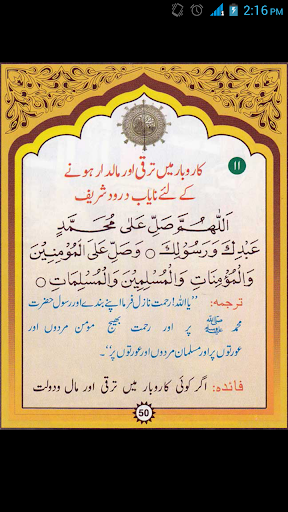 2:16 PM
کاروبار میں ترقی اور مالدار ہونے
۱۱
کے لئے نایاب درود شریف
اَللّٰهُمَّ صَلِّ عَلٰى مُحَمَّدٍ
عَبْدِكَ وَرَسُوْلِكَ ○ وَصَلِّ عَلَى الْمُؤْمِنِيْنَ
وَالْمُؤْمِنَاتِ وَالْمُسْلِمِيْنَ وَالْمُسْلِمَاتِ ○
ترجمہ: ”یا اللہ! رحمت نازل فرما اپنے بندے اور رسول حضرت
محمد ﷺ پر اور رحمت بھیج مومن مردوں اور
عورتوں پر اور مسلمان مردوں اور عورتوں پر“۔
فائدہ: اگر کوئی کاروبار میں ترقی اور مال ودولت
50